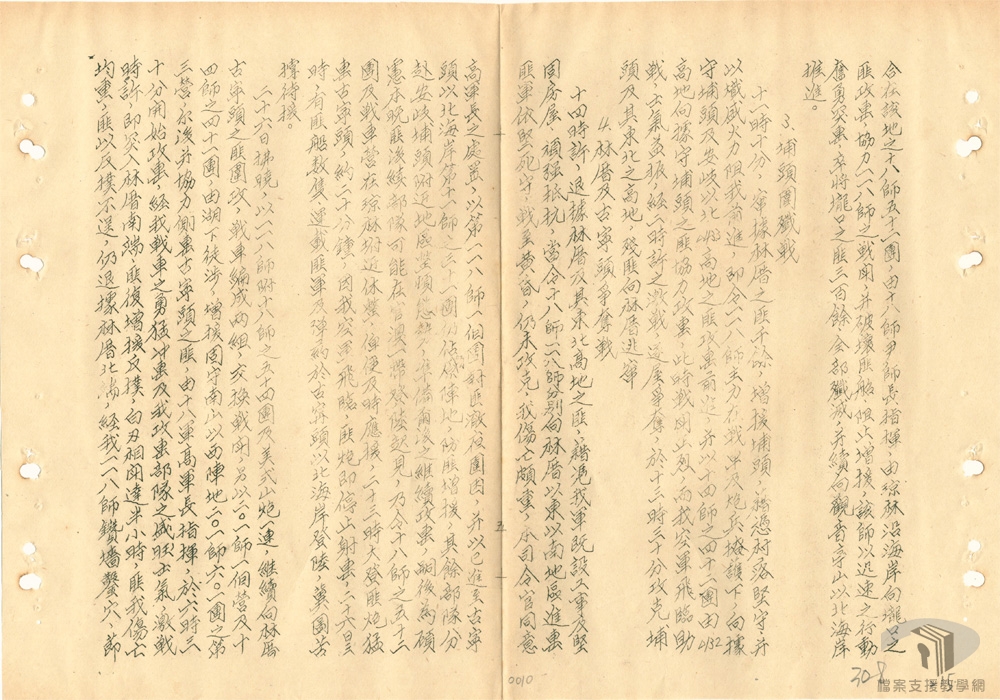 合在該地之十八師五十二團，由十八師尹師長指揮，由瓊林沿海岸向壠口之
匪攻擊，協力一一八師之戰鬥，并破壞匪船，阻止增援，該師以迅速之行動
奮勇突擊，卒將壠口之匪三百餘，全部殲滅，并續向觀音亭山以北海岸
推進。
3. 埔頭圍殲戰
十一時十分，竄據林厝之匪千餘，增援埔頭，藉憑村落堅守，并
以熾盛火力阻我前進，即令一一八師主力在戰車及炮兵掩護下，向據
守埔頭及安岐以北 高地之匪攻擊前進，并以十四師之四十二團由132
高地向據守埔頭之匪協力攻擊，此時戰鬥山烈，而我空軍飛臨助
戰，士氣益振，經二時許之激戰，逐屋爭奪，於十三時三十分攻克埔
頭及其東北之高地，殘匪向林厝逃竄
4. 林厝及古寧頭爭奪戰
十四時許，退據林厝及其東北高地之匪，藉憑我軍既設工事及堅
固房屋，頑强抵抗，當令十八師一一八師分別向林厝以東以南地區進擊
匪軍依堅死守，戰至黃昏，仍未攻克，我傷亡頗重，本司令官同意
高軍長之處置，以第一一八師一個團對匪澈夜圍困，并以已進至古寧
頭以北海岸第十一師之三十一團仍佔領陣地，防匪增援，其餘部隊分
赴安岐埔頭附近地區整頓態勢，準備爾後之繼續攻擊，嗣後為顧
慮本晚匪後續部隊可能在官澳一帶登陸起見，乃令十八師之五十二
團及戰車營在瓊林附近休整，俾便及時應援，二十三時大登匪炮猛
轟古寧頭，約二十分鐘，因我空軍飛臨，匪炮即停止射擊，二十六日三
時，有匪船數隻，運載匪軍及彈藥於古寧頭以北海岸登陸，冀圖苦
撐待援。
二十六日拂曉，以一一八師附十八師之五十四團及美式山炮一連，繼續向林厝
古寧頭之匪圍攻，戰車編成兩組，交換戰鬥，另以二〇一師一個營及十
四師之四十一團，由湖下徒涉，增援固守南山以西陣地二〇一師六〇一團之第
三營，爾後并協力側擊古寧頭之匪，由十八軍高軍長指揮，於六時三
十分開始攻擊，經我戰車之勇猛冲擊及我攻擊部隊之盛旺士氣，激戰
時許，即突入林厝南端，匪復增援反撲，白刃相鬥達半小時，匪我傷亡
均重，匪以反撲不逞，仍退據林厝北端，經我一一八師鑽墻鑿穴，節
五
0010
308
檔案支援教學網